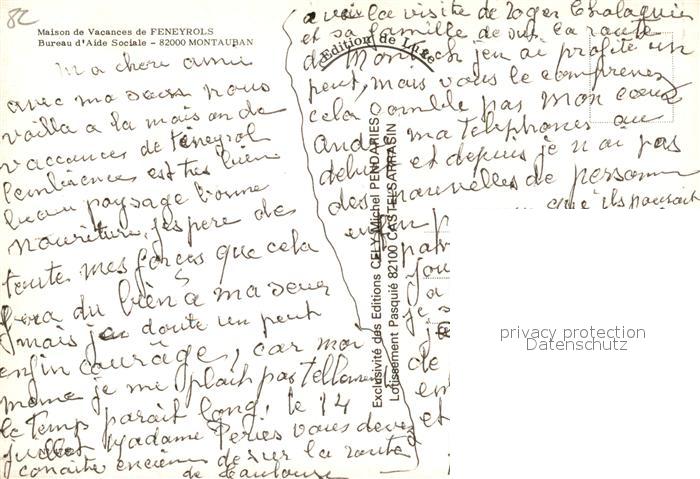 82
Maison de Vacances de FENEYROLS
Bureau d'Aide Sociale - 82000 MONTAUBAN
Ma chère amie
avec ma sœur nous
voilla a la maison de
vaccances de féneyrol
l'embience est très bien
beau paysage bonne
nouriture, j'espere de
toute mes forces que cela
fera du bien a ma sœur
mais j'en doute un peut
enfin courage, car moi
meme je me plait pas tellement
le temps parait long, le 14
juillet Madame Peries vous devez
conaitre encienne de sur la route
de Toulouse
a la visite de Roger Chalaguier
et sa famille de sur la route
de Montech j'en ai profité un
peut, mais vous le comprenez
cela comble pas mon cœur
André ma telephones au
debut et depuis je n'ai pas
des nouvelles de personne
enfin
qu'ils pourait
de
et
Edition de Luxe
Exclusivité des Editions CELY Michel PENDARIES
Lotissement Pasquié 82100 CASTELSARRASIN
privacy protection
Datenschutz